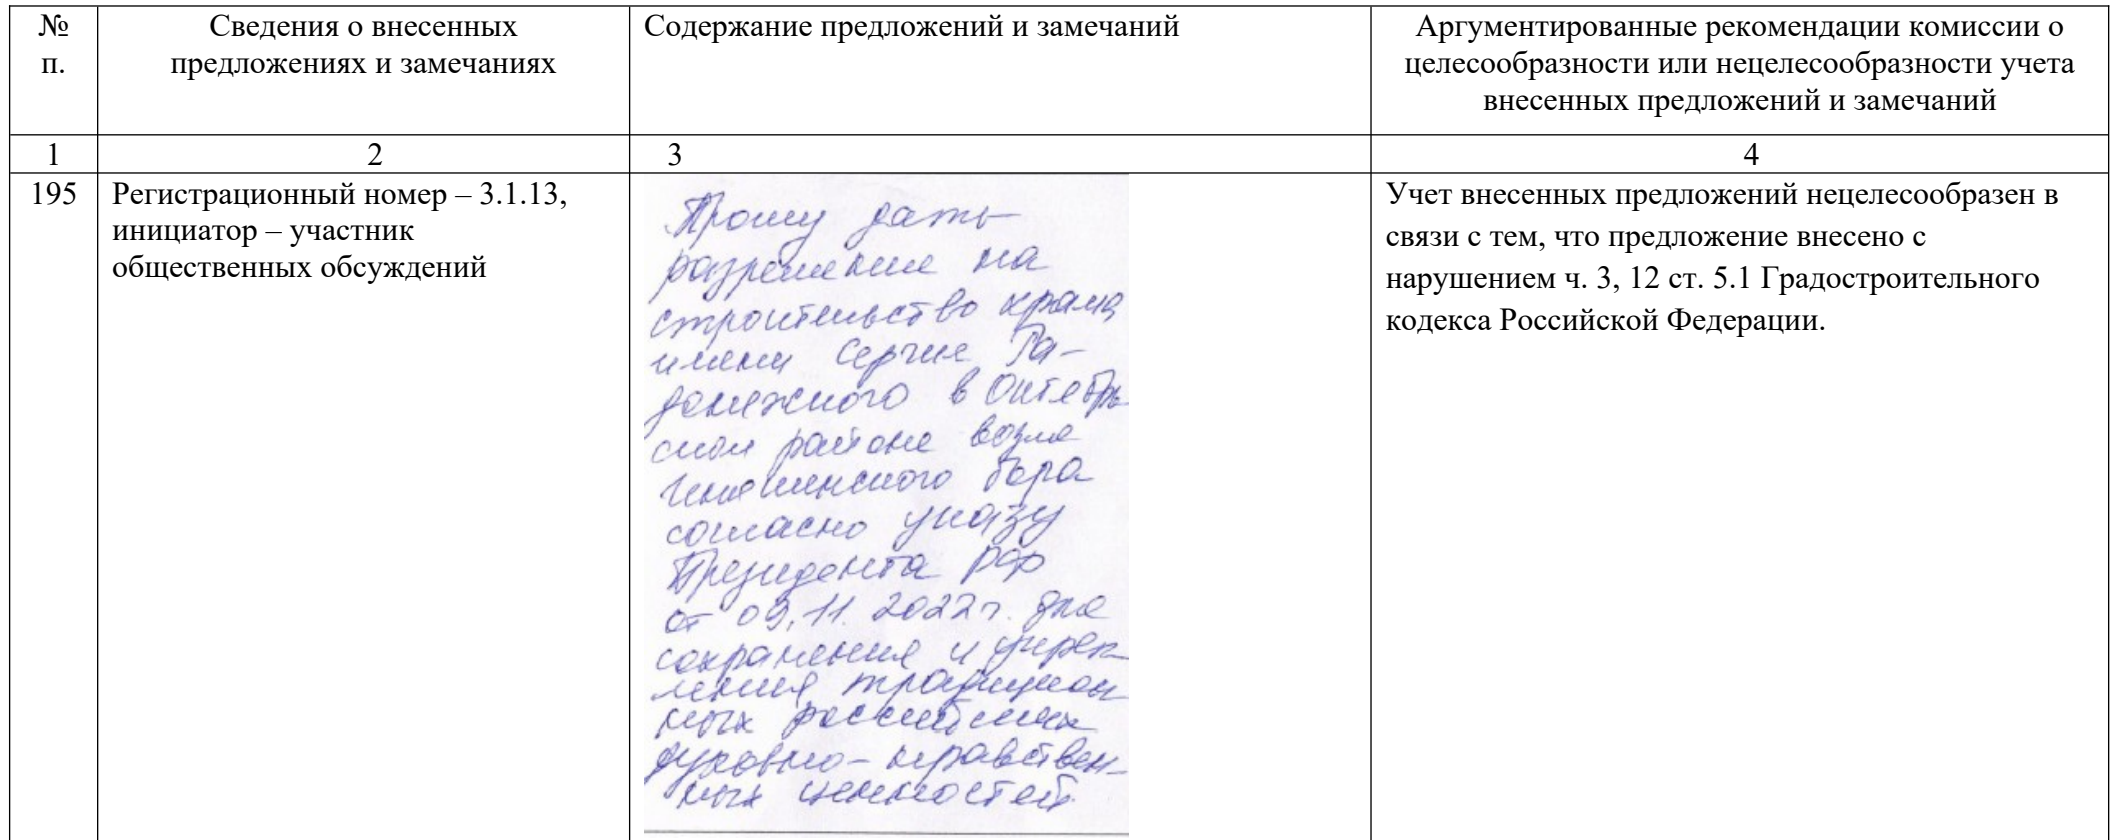 №
п.
Сведения о внесенных
предложениях и замечаниях
Содержание предложений и замечаний
Аргументированные рекомендации комиссии о
целесообразности или нецелесообразности учета
внесенных предложений и замечаний
1
2
3
4
195
Регистрационный номер – 3.1.13,
инициатор – участник
общественных обсуждений
Прошу дать
разрешение на
строительство храма
имени Сергия Ра-
донежного в Октябрь
ском районе возле
бора
согласно указу
Президента РФ
от 09.11.2022г. для
сохранения и укреп
ления традицион
ных российских
духовно-нравствен-
ных ценностей.
Учет внесенных предложений нецелесообразен в
связи с тем, что предложение внесено с
нарушением ч. 3, 12 ст. 5.1 Градостроительного
кодекса Российской Федерации.